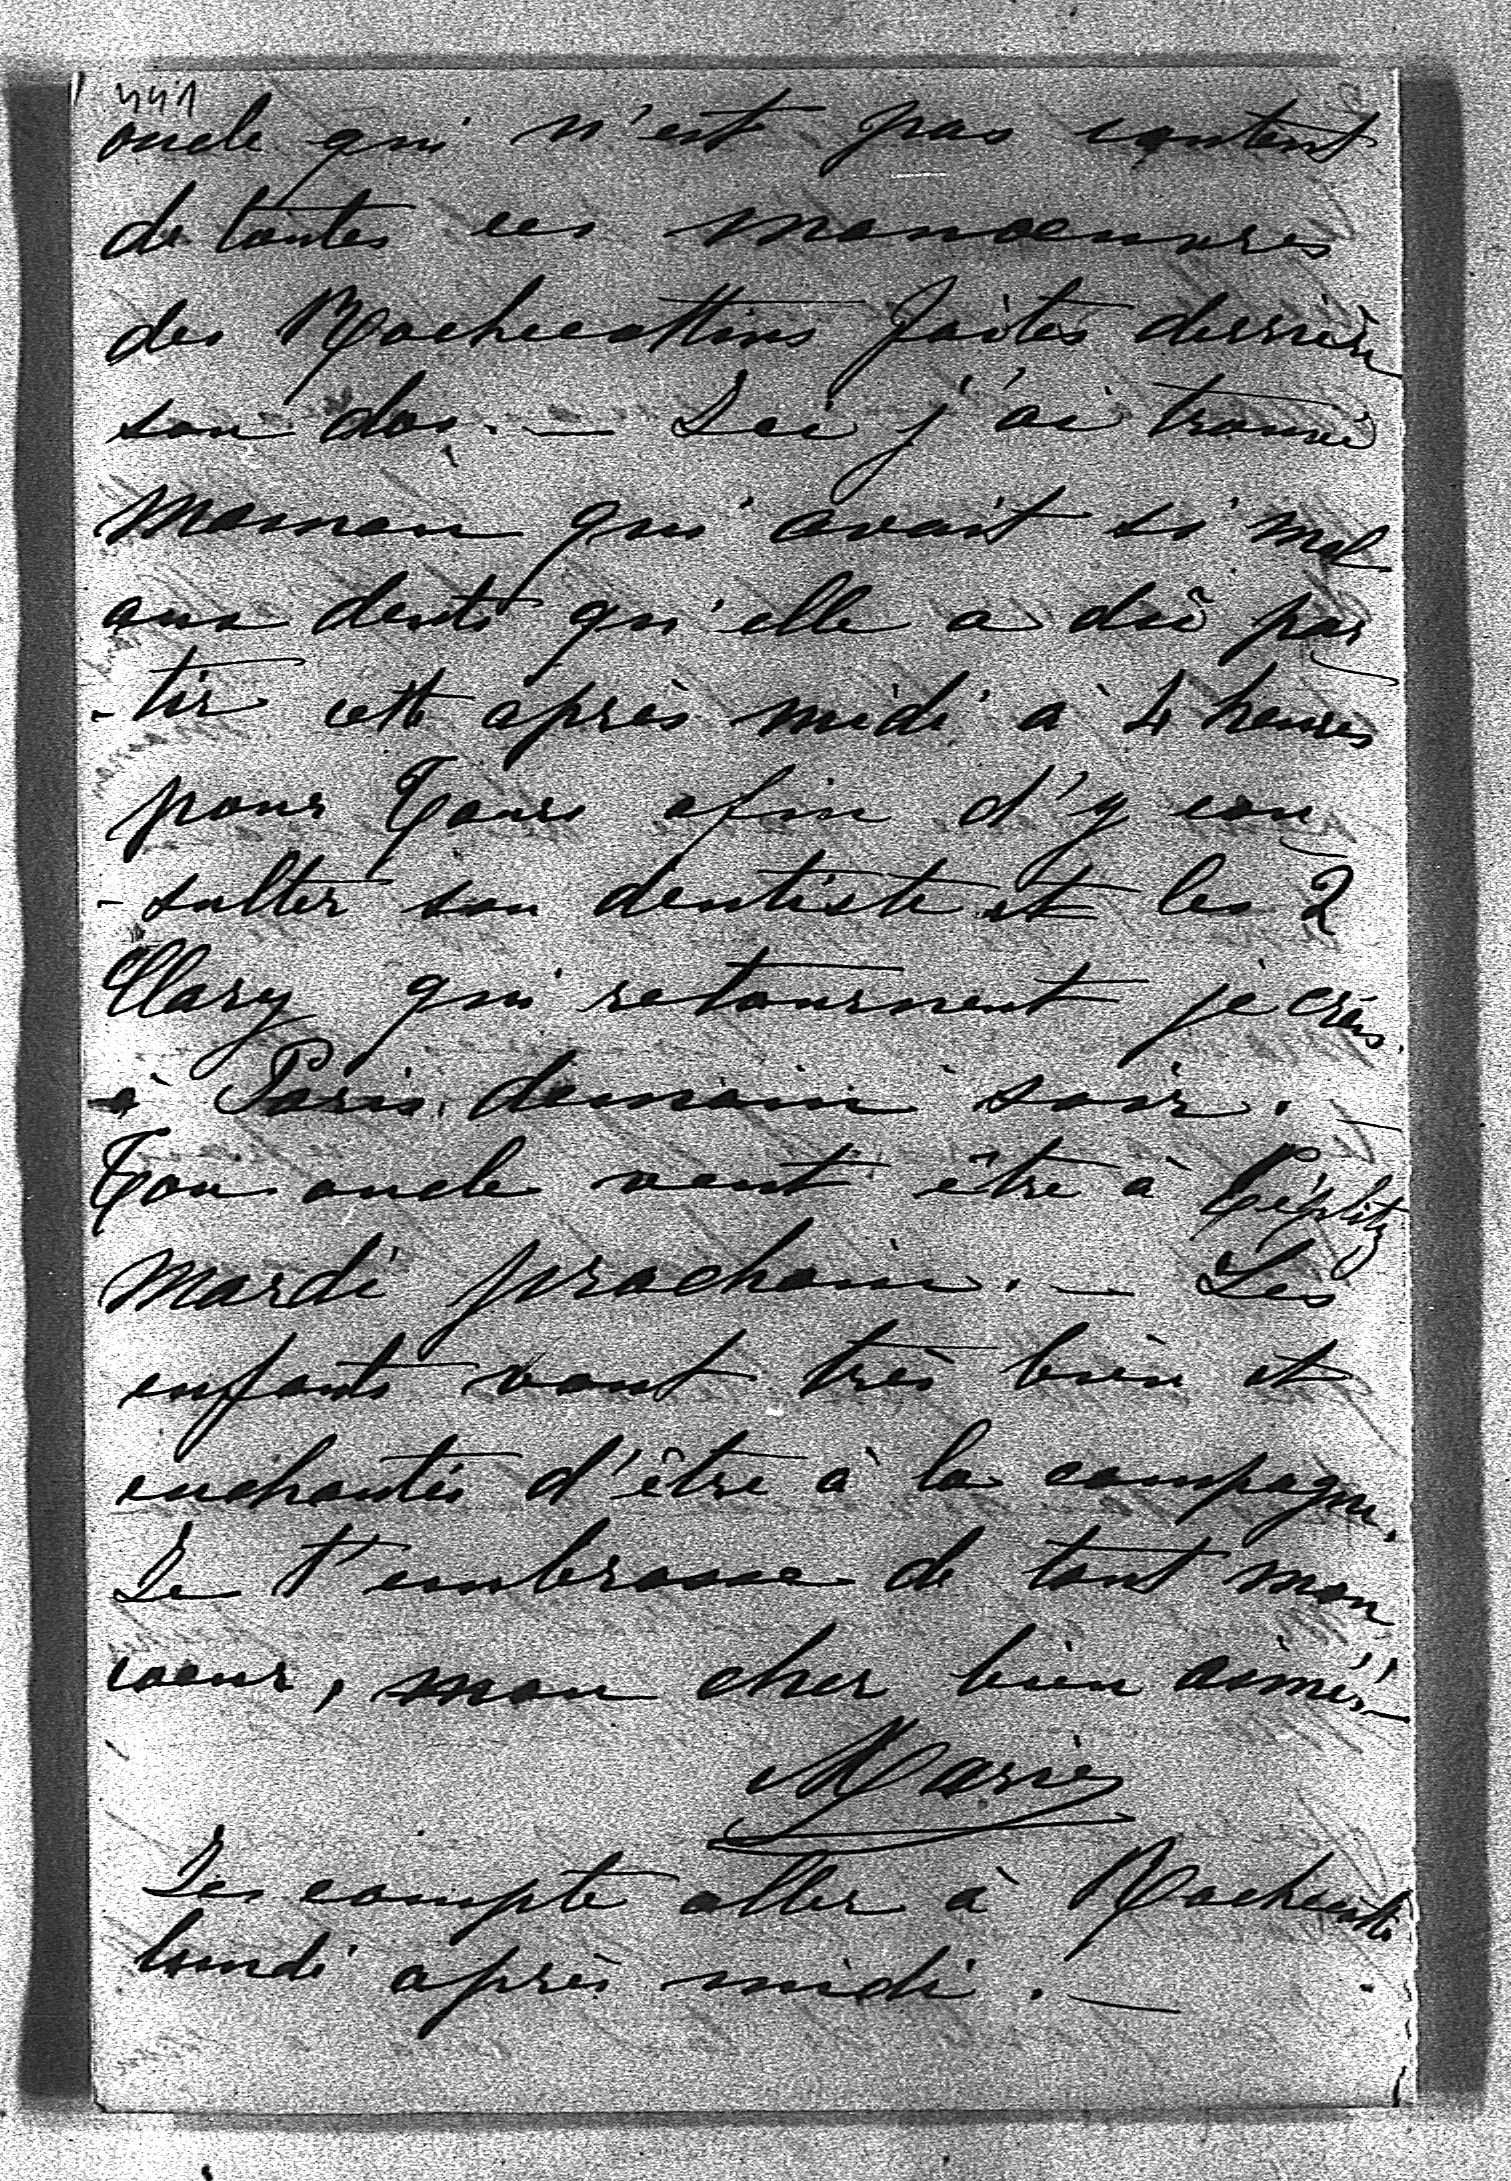 441
oncle qui n'est pas content
de toutes ces manoeuvres
des Rochecottins faites derrière
son dos. — Ici j'ai trouvé
maman qui avait si mal
aux dents qu'elle a dû par
-tir cette après midi à 4 heures
pour Tours afin d'y con
-sulter son dentiste et les 2
Clary qui retournent je crois
à Paris demain soir. —
Ton oncle veut être à Töplitz
mardi prochain. — Les
enfants vont très bien et
enchantés d'être à la campagne.
Je t'embrasse de tout mon
coeur, mon cher bien aimé. —
Marie
Je compte aller à Rochecotte
lundi après midi. —